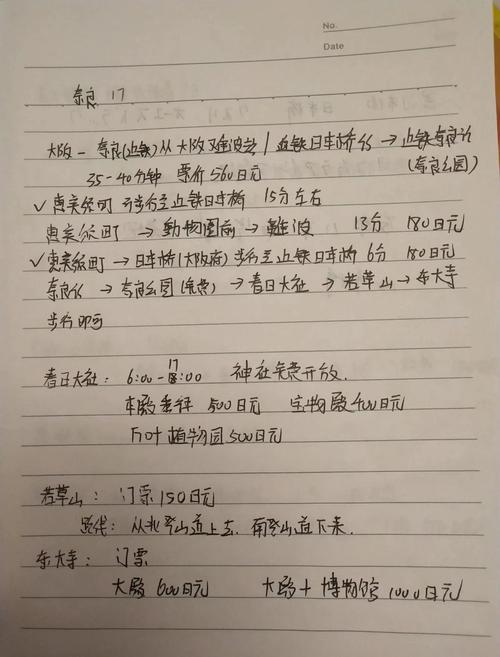 No.
Date
奈良 17
大阪 - 奈良(近铁)从大阪难波站 / 近铁日本桥站 → 近铁奈良站
35-40分钟 票价560日元 (奈良公园)
✓惠美须町 步行至近铁日本桥 15分左右
惠美须町 → 動物園前 → 難波 13分 180日元
✓惠美须町 → 日本桥(大阪府) 步行至近铁日本桥 6分 180日元
奈良站 → 奈良公园(免费) → 春日大社 → 若草山 → 东大寺
步行即可
春日大社: 6:00-17:00 神社免费开放.
本殿参拜 500日元 宝物殿400日元
万叶植物园500日元
若草山: 门票150日元
路线: 从北登山道上去, 南登山道下来.
东大寺: 门票
大殿 600日元 大殿+博物館 1000日元